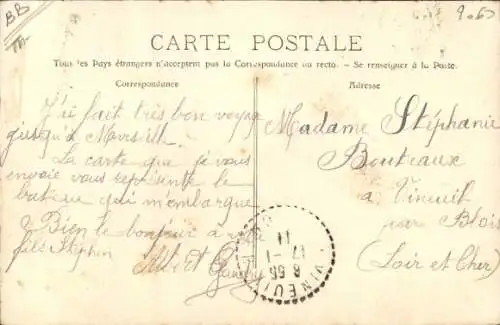 BB
9.65
CARTE POSTALE
Tous les Pays étrangers n'acceptent pas la Correspondance au recto. - Se renseigner à la Poste.
Correspondance
J'ai fait très bon voyage
jusqu'à Marseille.
La carte que je vous
envoie vous représente le
bateau qui m'embarque
Bien le bonjour à votre
fils Stéphen
Albert
Adresse
Madame Stéphanie
Bouteaux
à Vineuil
par Blois
(Loir et Cher)
VINEUIL
8 55
17 -1
11